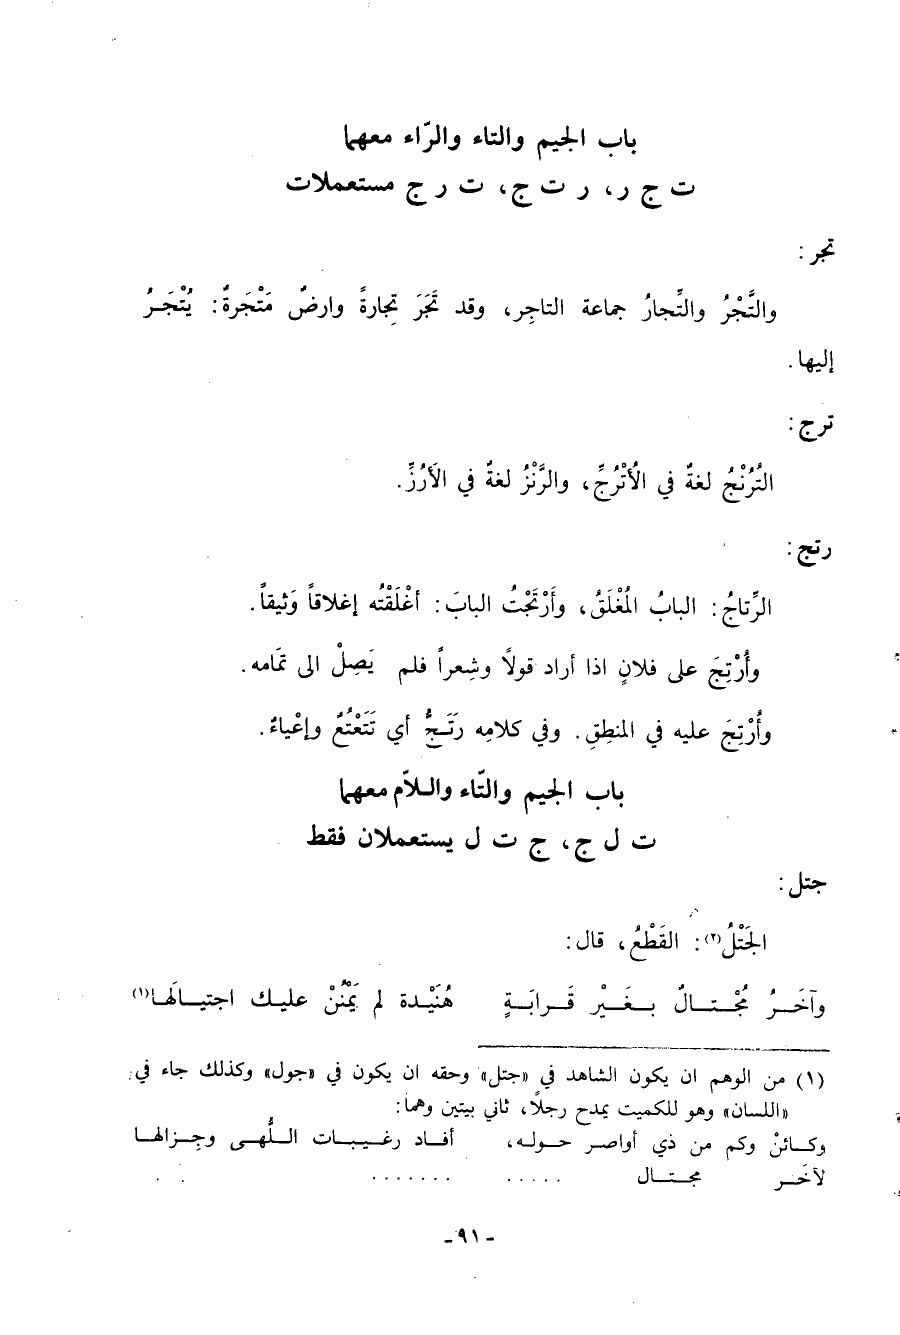 باب الجيم والتاء والرّاء معهما
ت ج ر، ر ت ج، ت ر ج مستعملات
تجر :
والتَّجْرُ والتِّجارُ جماعة التاجِر، وقد تَجَرَ تِجارةً وارضٌ مَتْجَرةٌ: يُتْجَـرُ
إليها.
ترج :
التُّرُنْجُ لغةٌ في الأُتْرُجِّ، والرَّنْزُ لغةٌ في الأَرُزِّ.
رتج :
الرِّتاجُ: البابُ المُغْلَقُ، وأَرْتَجْتُ البابَ: أغْلَقْتُه إغلاقاً وَثيقاً.
وأُرْتِجَ على فلانٍ اذا أراد قولاً وشِعراً فلم يَصِلْ الى تمَامه.
وأُرْتِجَ عليه في المنطِقِ. وفي كلامِه رَتَجٌ أي تَتَعْتُعٌ وإعْياءٌ.
باب الجيم والتّاء واللاّم معهما
ت ل ج، ج ت ل يستعملان فقط
جتل :
الجَتْلُ(٢): القَطْعُ، قال:
وآخَـرُ مُجْـتـالٌ بـغَـيْر قَـرابَـةٍ هُنَيْـدة لم يَمْنُنْ عليـك اجتيـالَهـا(١)
(١) من الوهم ان يكون الشاهد في «جتل» وحقه ان يكون في «جول» وكذلك جاء في
«اللسان» وهو للكميت يمدح رجلاً، ثاني بيتين وهما:
وكـائنْ وكم من ذي أواصر حـوله، أفـاد رغـيبـات اللُّهـى وجـزالهـا
لآخَـر مجـتـال ..... ....... . .
- ٩١ -